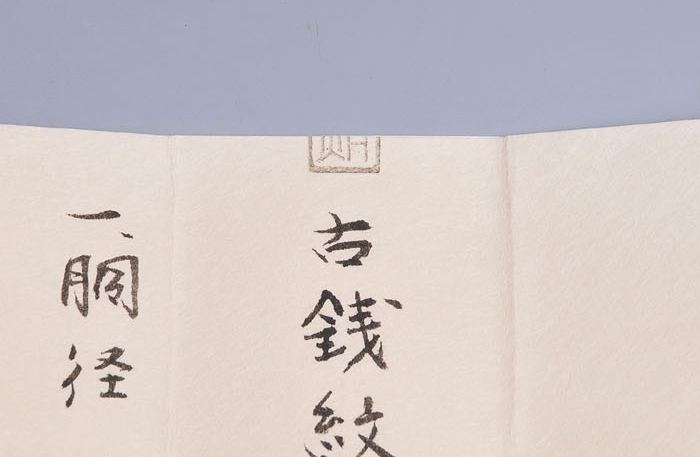 古銭紋
一、胴径